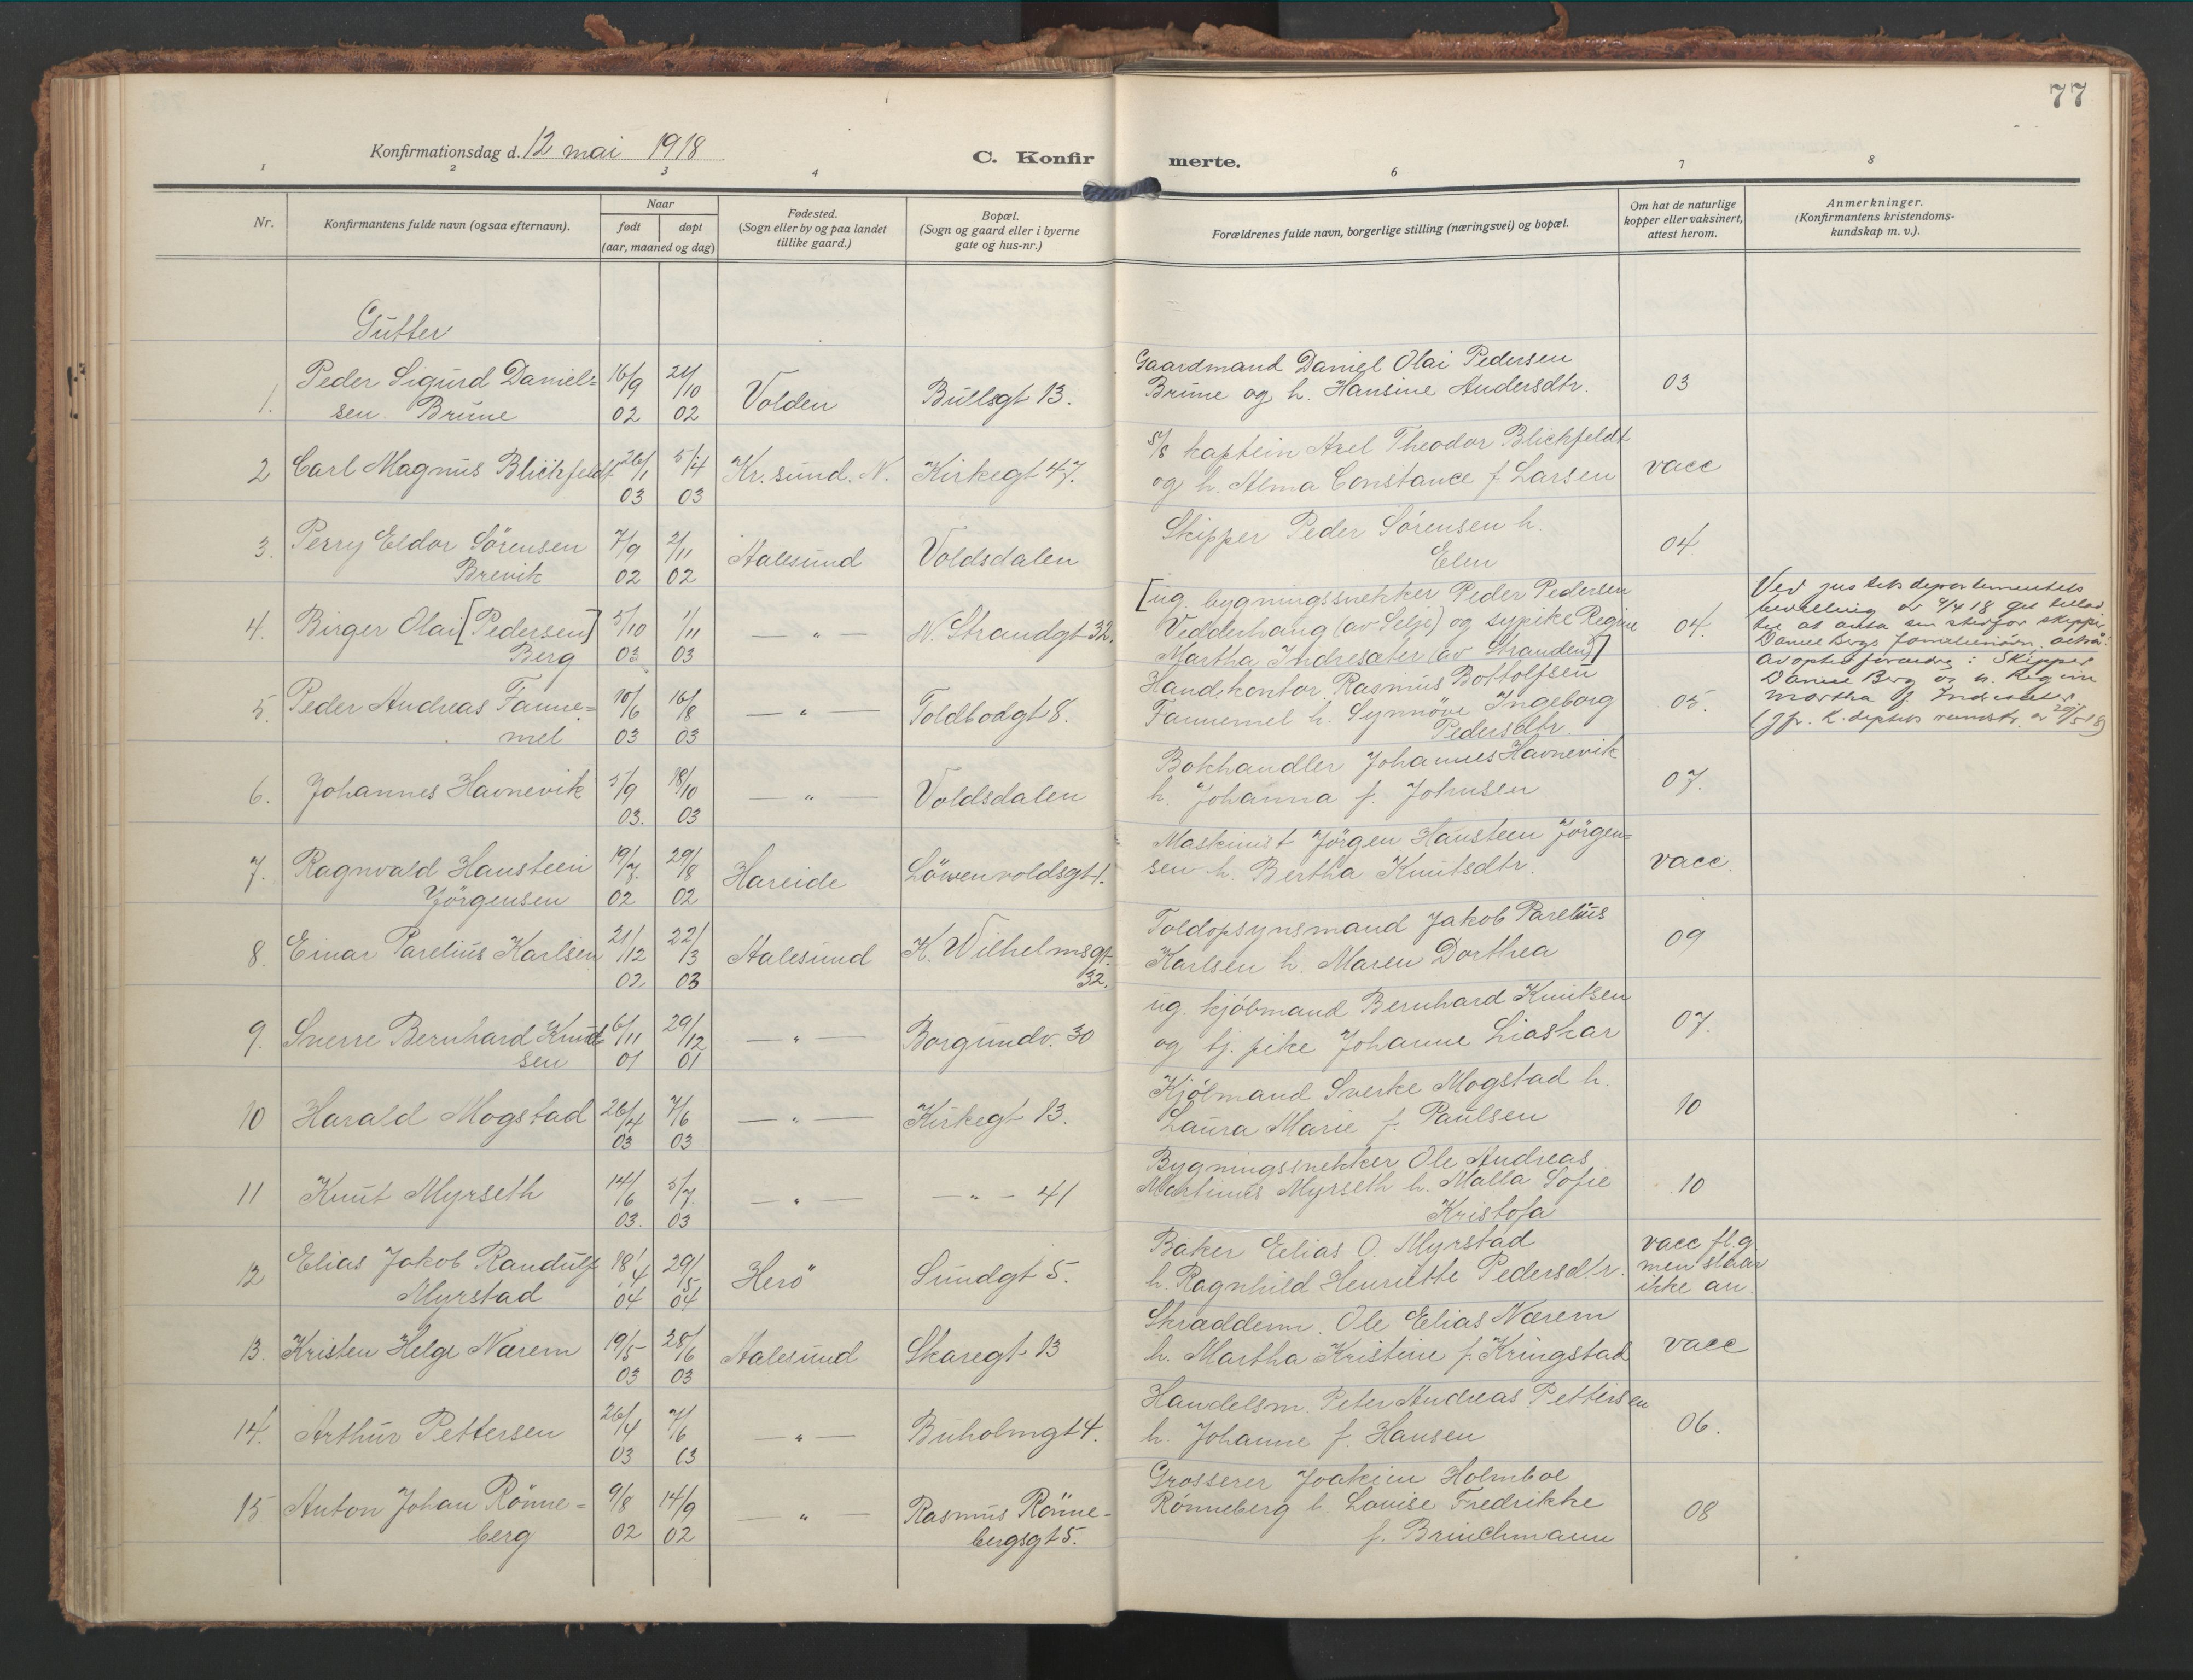 77
Konfirmationsdag d. 12 mai 1918
C. Konfir merte.
1 2 3 4 6 7 8
Nr.
Konfirmantens fulde navn (ogsaa efternavn).
Naar
født døpt
(aar, maaned og dag)
Fødested.
(Sogn eller by og paa landet
tillike gaard.)
Bopæl.
(Sogn og gaard eller i byerne
gate og hus-nr.)
Forældrenes fulde navn, borgerlige stilling (næringsvei) og bopæl.
Om hat de naturlige
kopper eller vaksinert,
attest herom.
Anmerkninger.
(Konfirmantens kristendoms-
kundskap m. v.).
Gutter
1. Peder Sigurd Daniel= 16/9 21/10 Gaardmand Daniel Olai Pedersen
sen Brune 02 02 Volden Bullsgt 13. Brune og h. Hansine Andersdtr. 03
2 Carl Magnus Blichfeldt 26/1 5/4 Kr.sund. N. Kirkegt 47. s/s kaptein Axel Theodor Blichfeldt
03 03 og h. Alma Constance f. Larsen vacc
3. Perry Eldor Sörensen 7/9 2/11 Aalesund Voldsdalen Skipper Peder Sörensen h.
Brevik 02 02 Elen 04
4. Birger Olai [Pedersen] 5/10 1/11 — " — N. Strandgt 32. [ug. bygningssnekker Peder Pedersen
Berg 03 03 Vedderhaug (av Selje) og sypike Regine 04.
Martha Indresæter (av Stranden)]
Ved justisdepartementets
bevilling av 4/4 18 git tillad.
til at anta sin stedfar skipper
Daniel Bergs familienavn
Adoptivforældre: Skipper
Daniel Berg og h. Regine
Martha f. Indresæter
5. Peder Andreas Fanne= 10/6 16/8 — " — Toldbodgt 8. Handkontor. Rasmus Bottolfsen
mel 03 03 Fannemel h. Synnöve Ingeborg 05.
Pedersdtr.
6. Johannes Havnevik 5/9 18/10 — " — Voldsdalen Bokhandler Johannes Havnevik
03. 03 h. Johanna f. Johnsen 07.
7. Ragnvald Hansteen 19/7. 29/8 Hareide Löwenvoldsgt 1. Maskinist Jörgen Hansteen Jörgen=
Jörgensen 02 02 sen h. Bertha Knutsdtr. vacc.
8. Einar Parelius Karlsen 21/12 22/3 Aalesund K. Wilhelmsgt. Toldopsynsmand Jakob Parelius
02 03 32. Karlsen h. Maren Dorthea 09
9. Sverre Bernhard Knud 6/11 29/12 — " — Borgundv. 30 ug. kjöbmand Bernhard Knutsen
sen 01 01 og tj. pike Johanne Liaskar 07.
10 Harald Mogstad 26/4 7/6 — " — Kirkegt 13. Kjöbmand Sverke Mogstad h.
03 03 Laura Marie f. Paulsen 10
11 Knut Myrseth 14/6 5/7. — " — — " — 41 Bygningssnekker Ole Andreas
03. 03 Martinus Myrseth h. Malla Sofie 10
Kristofa
12 Elias Jakob Randulf 18/4 29/5 Herö Sundgt 5. Baker Elias O. Myrstad vacc fl. g
Myrstad 04 04 h. Ragnhild Henriette Pedersdtr. men slaar
ikke an.
13. Kristen Helge Nærem 19/5 28/6 Aalesund Skaregt 13 Skrædderm. Ole Elias Nærem
03 03 h. Martha Kristine f. Kringstad vacc
14. Arthur Pettersen 26/4 7/6 — " — Buholmgt 4. Handelsm. Peter Andreas Pettersen
03 03 h. Johanne f. Hansen 06.
15 Anton Johan Rönne= 9/8 14/9 — " — Rasmus Rönne- Grosserer Joakim Holmboe
berg 02 02 bergsgt 5. Rönneberg h. Lovise Fredrikke 08
f. Brinchmann